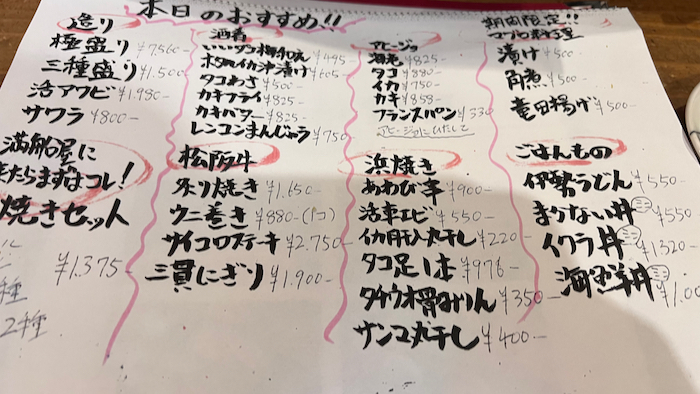 本日のおすすめ!!
造り
極盛り ¥7,500-
三種盛り ¥1,500-
活アワビ ¥1,980-
サワラ ¥800-
満船屋に
きたらまずはコレ!
焼きセット
¥1,375-
2種
酒肴
いいダコ梅和え ¥495
ホタルイカ沖漬け ¥605
タコわさ ¥500-
カキフライ ¥825-
カキバター ¥825-
レンコンまんじゅう ¥750-
松阪牛
炙り焼き ¥1,650-
ウニ巻き ¥880-(1コ)
サイコロステーキ ¥2,750-
三貫にぎり ¥1,900-
アヒージョ
海老 ¥825-
タコ ¥880-
イカ ¥750-
カキ ¥858-
フランスパン ¥330
アヒージョにひたして
浜焼き
あわび串 ¥900-
活車エビ ¥550-
イカ肝入丸干し ¥220-
タコ足1本 ¥976-
タチウオ骨みりん ¥350-
サンマ丸干し ¥400-
期間限定!!
マグロ料理
漬け ¥500
角煮 ¥500-
竜田揚げ ¥500-
ごはんもの
伊勢うどん ¥550-
まかない丼 ミニ ¥550
イクラ丼 ミニ ¥1,320
海鮮丼 ミニ